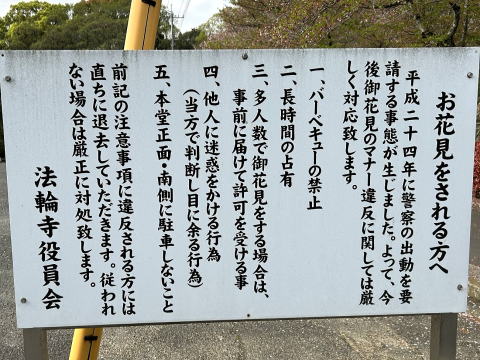 お花見をされる方へ
平成二十四年に警察の出動を要
請する事態が生じました。よって、今
後御花見のマナー違反に関しては厳
しく対応致します。
一、バーベキューの禁止
二、長時間の占有
三、多人数で御花見をする場合は、
事前に届けて許可を受ける事
四、他人に迷惑をかける行為
(当方で判断し目に余る行為)
五、本堂正面・南側に駐車しないこと
前記の注意事項に違反される方には
直ちに退去していただきます。従われ
ない場合は厳正に対処致します。
法輪寺役員会